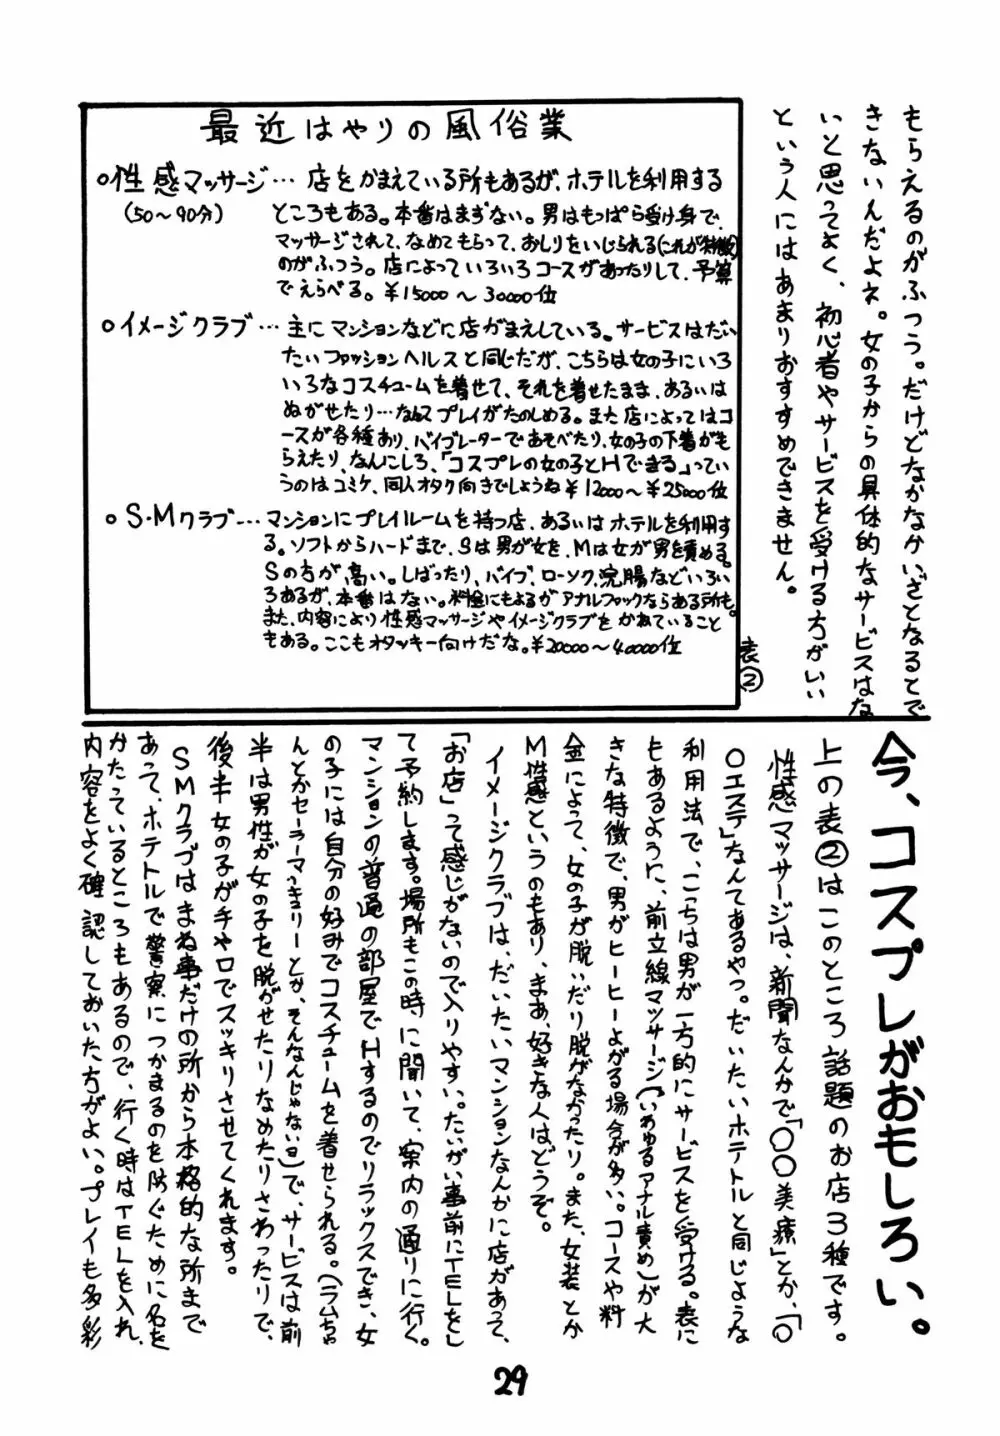 もらえるのがふつう。だけどなかなかいざとなるとで
きないんだよネ。女の子からの具体的なサービスはな
いと思ってよく、初心者やサービスを受ける方がいい
という人にはあまりおすすめできません。
表②
最近はやりの風俗業
○性感マッサージ… 店をかまえている所もあるが、ホテルを利用する
(50〜90分)
ところもある。本番はまずない。男はもっぱら受け身で、
マッサージされて、なめてもらって、おしりをいじられる(これが特徴)
のがふつう。店によっていろいろコースがあったりして、予算
でえらべる。¥15000〜30000位
○イメージクラブ… 主にマンションなどに店がまえしている。サービスはだい
たいファッションヘルスと同じだが、こちらは女の子にいろ
いろなコスチュームを着せて、それを着せたまま、あるいは
ぬがせたり…なんてプレイがたのしめる。また店によってはコ
ースが各種あり、バイブレーターであそべたり、女の子の下着がも
らえたり、なんにしろ、「コスプレの女の子とHできる」ってい
うのはコミケ、同人オタク向きでしょうね¥12000〜¥25000位
○S・Mクラブ… マンションにプレイルームを持つ店、あるいはホテルを利用す
る。ソフトからハードまで、Sは男が女を、Mは女が男を責める。
Sの方が高い。しばったり、バイブ、ローソク、浣腸などいろい
ろあるが、本番はない。料金にもよるがアナルファックならある所も。
また、内容により性感マッサージやイメージクラブをかねていること
もある。ここもオタッキー向けだな。¥20000〜40000位
今、コスプレがおもしろい。
上の表②はこのところ話題のお店3種です。
性感マッサージは、新聞なんかで「○○美療」とか、「○
○エステ」なんてあるやつ。だいたいホテトルと同じような
利用法で、こっちは男が一方的にサービスを受ける。表に
もあるように、前立線マッサージ(いわゆるアナル責め)が大
きな特徴で、男がヒーヒーよがる場合が多い。コースや料
金によって、女の子が脱いだり脱がなかったり。また、女装とか
M性感というのもあり、まあ、好きな人はどうぞ。
イメージクラブは、だいたいマンションなんかに店があって、
「お店」って感じがないので入りやすい。たいがい事前にTELをし
て予約します。場所もこの時に聞いて、案内の通りに行く。
マンションの普通の部屋でHするのでリラックスでき、女
の子には自分の好みでコスチュームを着せられる。(ラムちゃ
んとかセーラーマーキュリーとか、そんなんじゃない日)で、サービスは前
半は男性が女の子を脱がせたりなめたりさわったりで、
後半女の子が手や口でスッキリさせてくれます。
SMクラブはまね事だけの所から本格的な所まで
あって、ホテトルで警察につかまるのを防ぐために名を
かたっているところもあるので、行く時はTELを入れ、
内容をよく確認しておいた方がよい。プレイも多彩
29